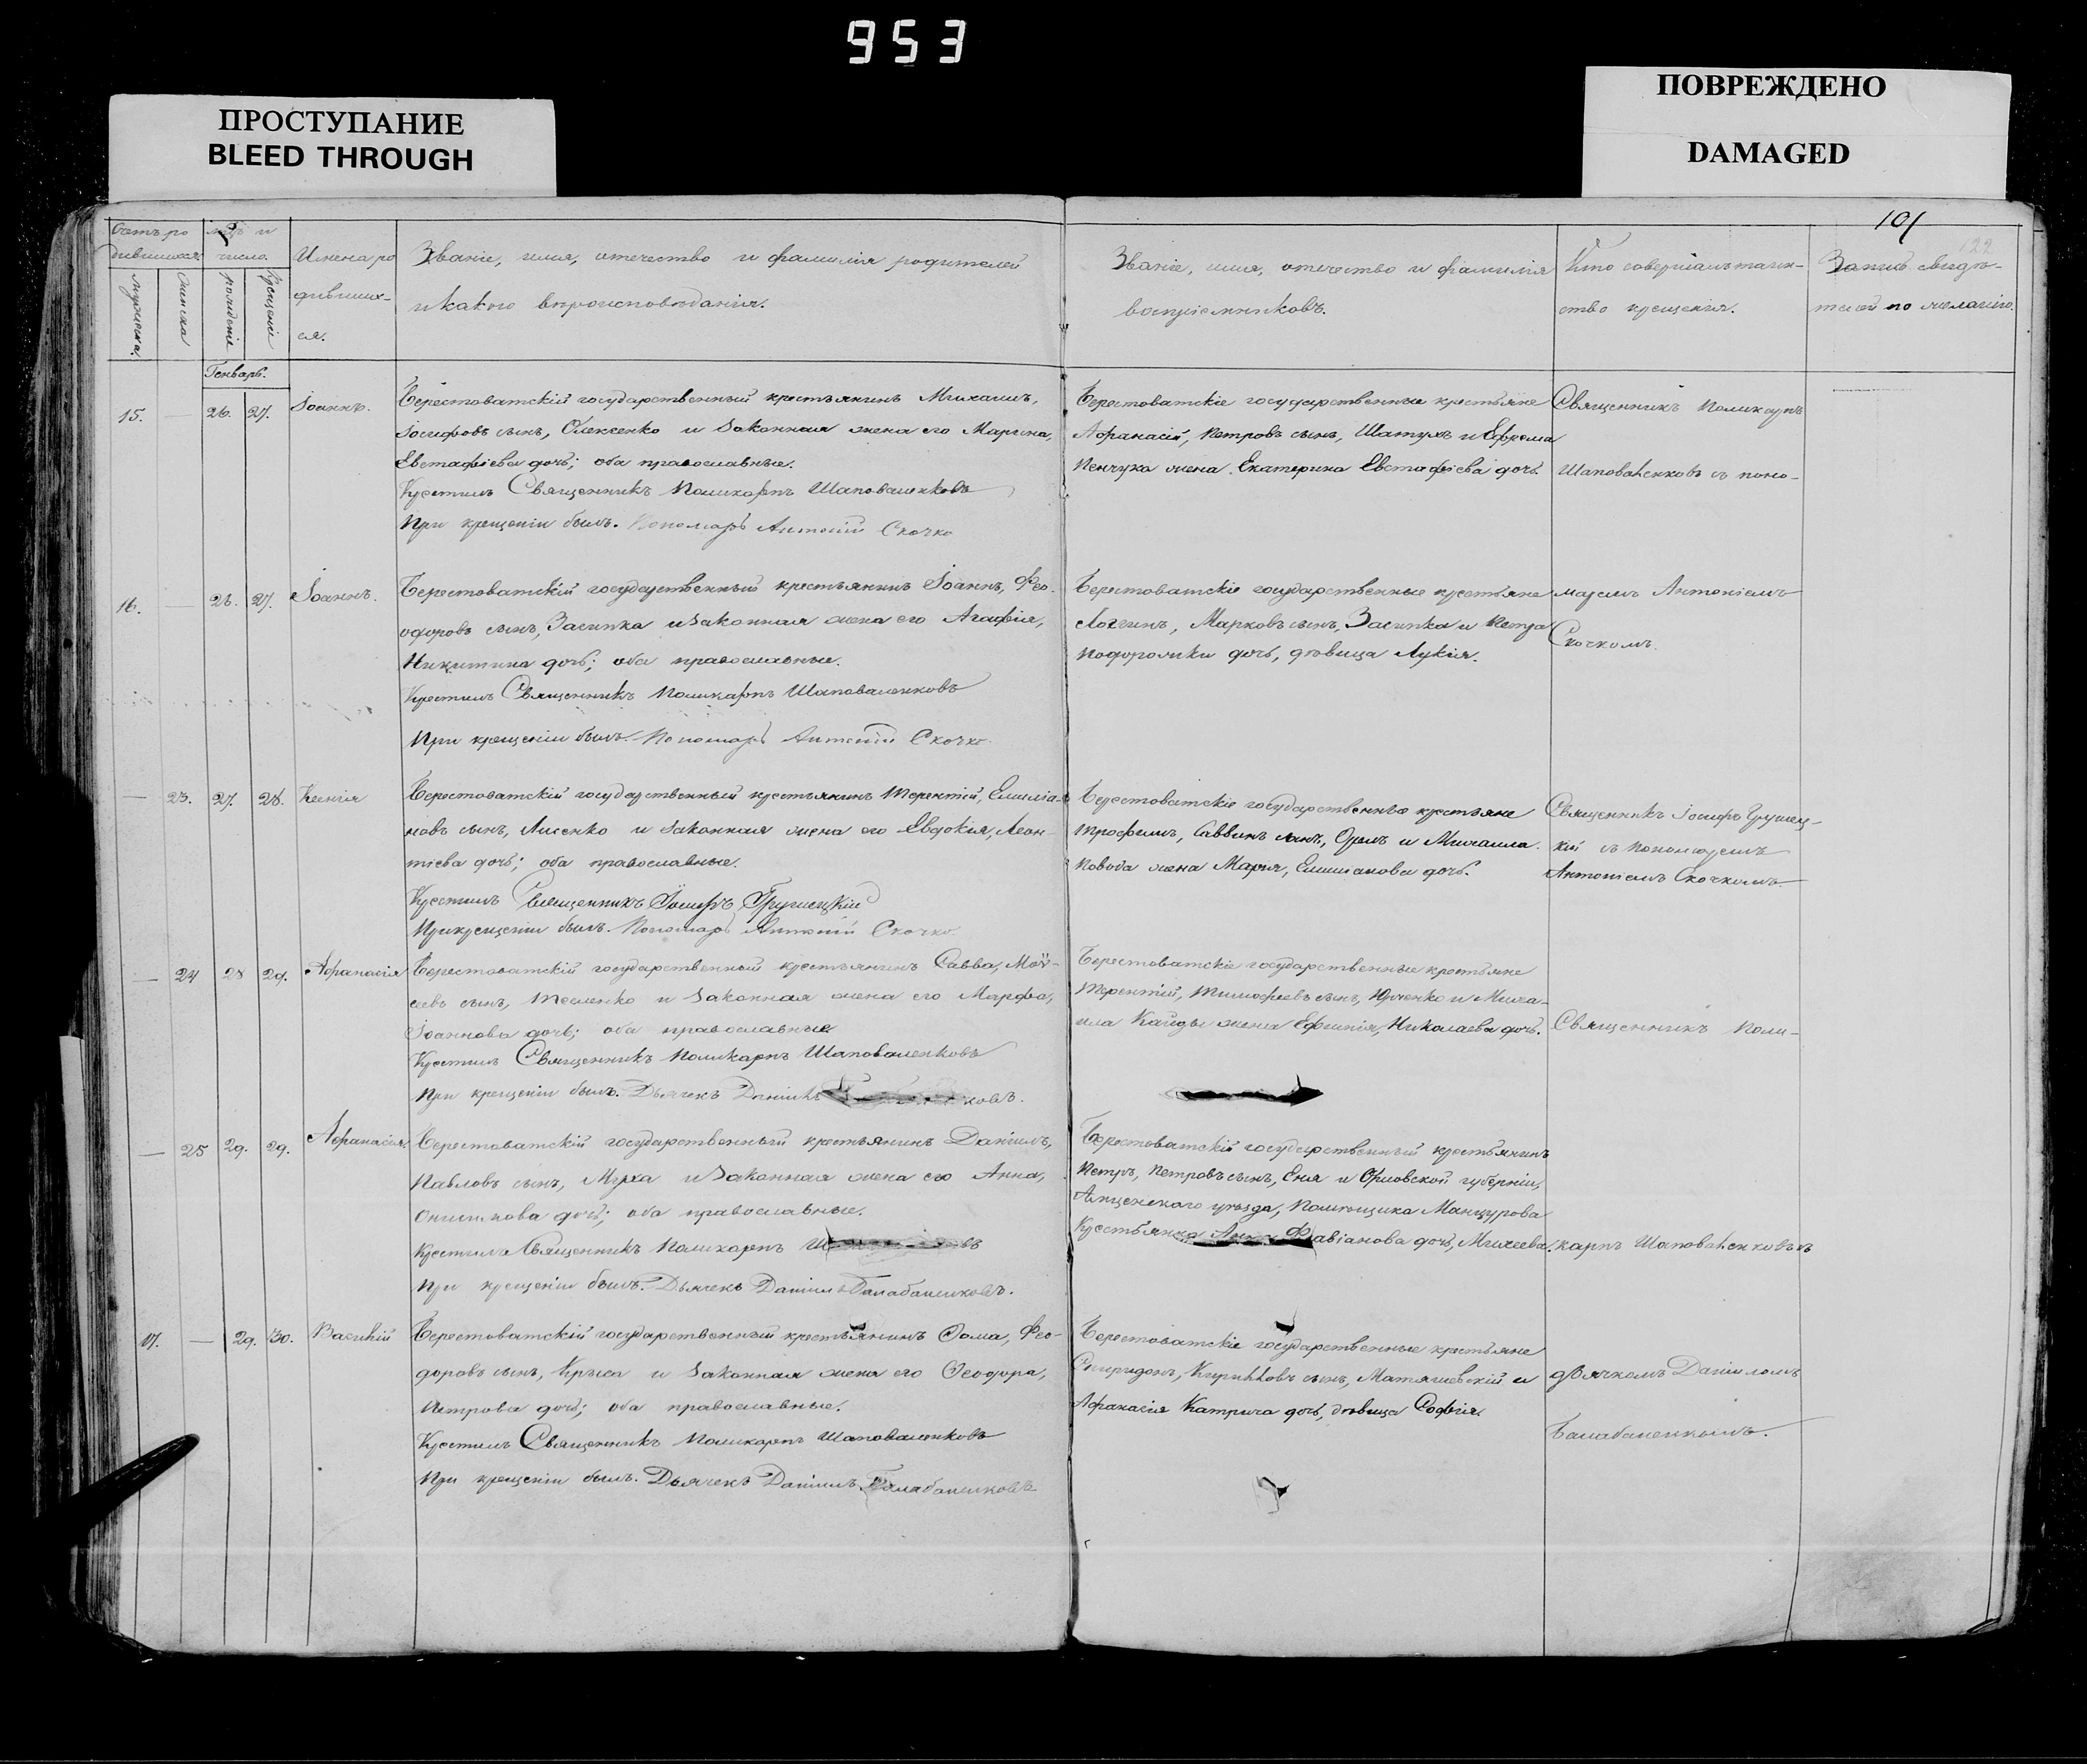 953
ПРОСТУПАНИЕ
BLEED THROUGH
ПОВРЕЖДЕНО
DAMAGED
101
122
Счетъ ро
дившихся
мѣс. и
число.
мужеска.
женска
рожденіе
крещеніе
Имена ро
дивших-
ся.
Званіе, имя, отечество и фамилія родителей
и какого вѣроисповѣданія.
Званіе, имя, отечество и фамилія
воспріемниковъ.
Кто совершалъ таин-
ство крещенія.
Запись свидѣ-
телей по желанію.
Генварь.
15. — 26. 27. Іоаннъ.
Берестоватскій государственный крестьянинъ Михаилъ,
Іосифовъ сынъ, Олексенко и законная жена его Марина,
Евстафіева дочь; оба православные.
Крестилъ Священникъ Поликарпъ Шаповаленковъ
При крещеніи былъ. Пономарь Антоній Скочко
Берестоватскіе государственные крестьяне
Афанасій, Петровъ сынъ, Шатухъ и Ефрема
Пенчука жена Екатерина Евстафіева дочь.
Священникъ Поликарпъ
Шаповаленковъ съ поно-
16. — 26. 27. Іоаннъ.
Берестоватскій государственный крестьянинъ Іоаннъ, Фео-
доровъ сынъ, Засипка и законная жена его Агафія,
Никитина дочь; оба православные.
Крестилъ Священникъ Поликарпъ Шаповаленковъ
При крещеніи былъ. Пономарь Антоній Скочко.
Берестоватскіе государственные крестьяне
Логгинъ, Марковъ сынъ, Засипка и Петра
дочь, дѣвица Лукія.
маремъ Антоніемъ
Скочкомъ.
— 23. 27. 28. Ксенія
Берестоватскій государственный крестьянинъ Терентій, Емиліа-
новъ сынъ, Лисенко и законная жена его Евдокія, Леон-
тіева дочь; оба православные.
Крестилъ Священникъ Іосифъ Грушецкій
При крещеніи былъ. Пономарь Антоній Скочко.
Берестоватскіе государственные крестьяне
Трофимъ, Саввинъ сынъ, Орелъ и Михаила
жена Марія, Емиліанова дочь.
Священникъ Іосифъ Грушец-
кій съ пономаремъ
Антоніемъ Скочкомъ.
— 24 28 29. Афанасія
Берестоватскій государственный крестьянинъ Савва, Моѵ-
сеевъ сынъ, Тесленко и законная жена его Марфа,
Іоаннова дочь; оба православные
Крестилъ Священникъ Поликарпъ Шаповаленковъ
При крещеніи былъ. Дьячекъ Даніилъ ковъ.
Берестоватскіе государственные крестьяне
Терентій, Тимофеевъ сынъ, Юрченко и Миха-
ила Кайды жена Ефимія, Николаева дочь.
Священникъ Поли-
— 25 29. 29. Афанасія
Берестоватскій государственный крестьянинъ Даніилъ,
Павловъ сынъ, Муха и законная жена его Анна,
Онисимова дочь; оба православные.
Крестилъ Священникъ Поликарпъ Ш въ
При крещеніи былъ. Дьячекъ Даніилъ Балабаненковъ.
Берестоватскій государственный крестьянинъ
Петръ, Петровъ сынъ, Еня и Орловской губерніи,
уѣзда, помѣщика Манцурова
Крестьянка Фавіанова дочь, Михеева.
карпъ Шаповаленковъ съ
17. — 29. 30. Василій
Берестоватскій государственный крестьянинъ Ѳома, Фео-
доровъ сынъ, Крыса и законная жена его Ѳеодора,
Петрова дочь; оба православные.
Крестилъ Священникъ Поликарпъ Шаповаленковъ
При крещеніи былъ. Дьячекъ Даніилъ Балабаненковъ
Берестоватскіе государственные крестьяне
Спиридонъ, Кирилловъ сынъ, Матяшевскій и
Афанасія Катрича дочь, дѣвица Софія.
дьячкомъ Даніиломъ
Балабаненкомъ.